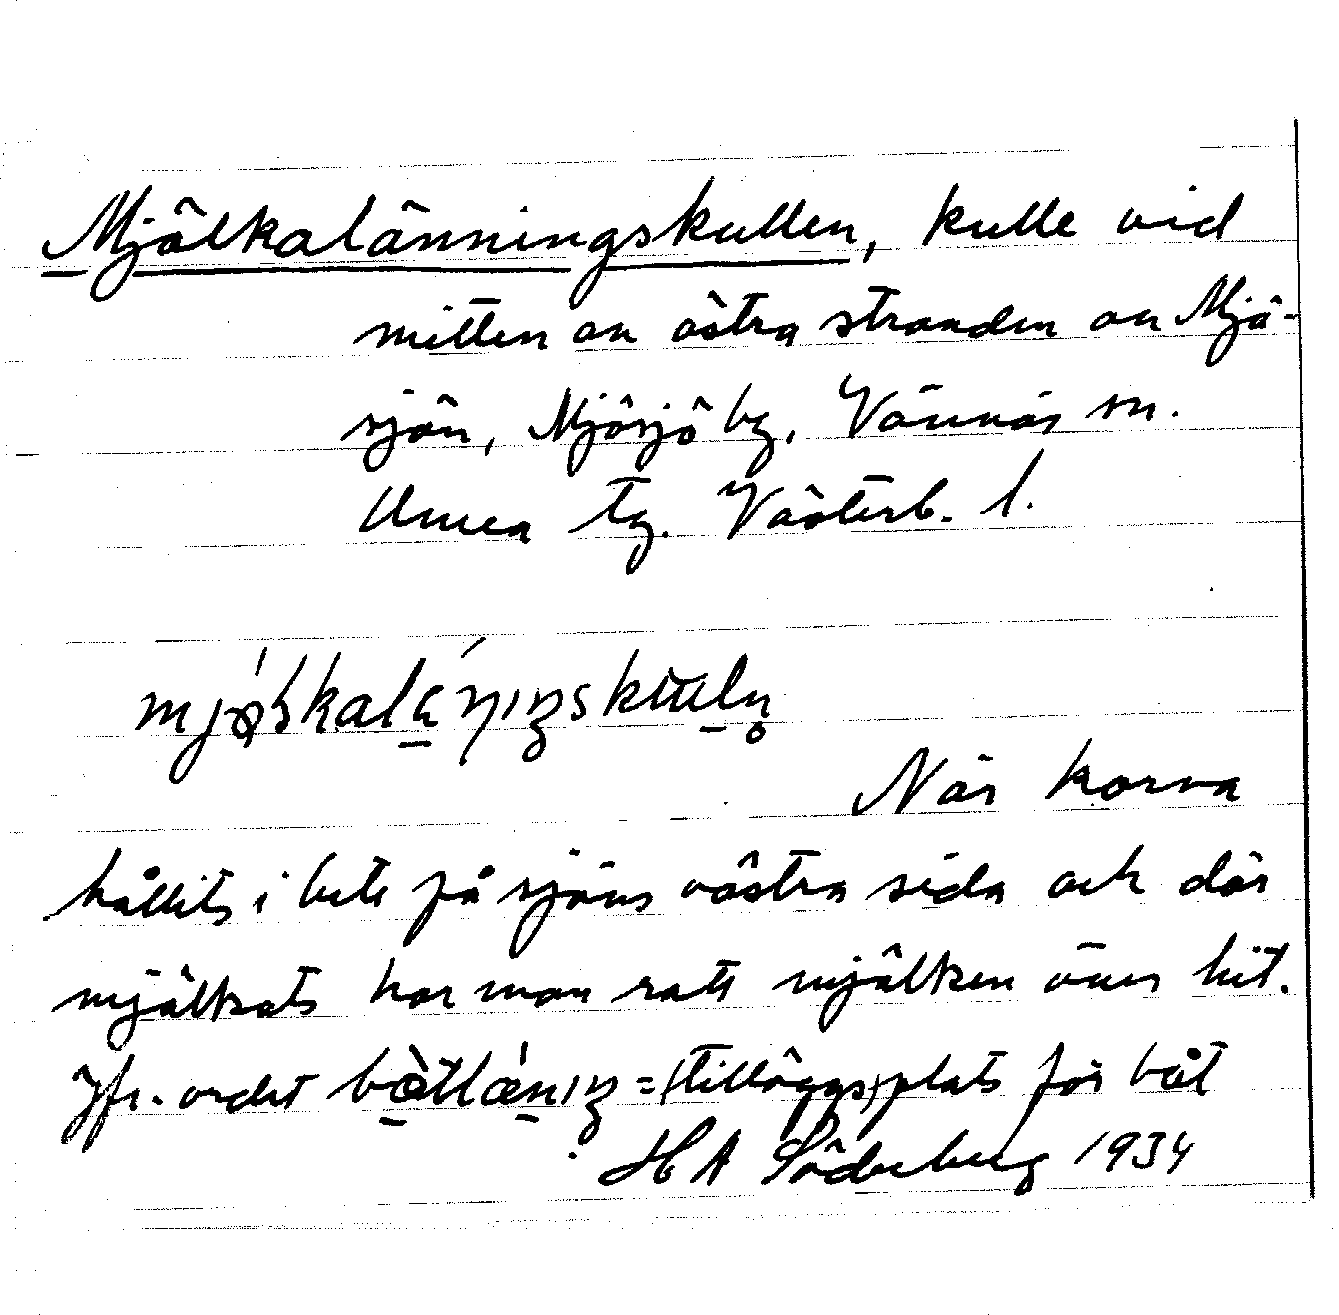 Mjölkalänningskullen, kulle vid
mitten av östra stranden av Mjö-
sjön, Mjösjö by, Vännäs sn.
Umea tg. Västerb. l.
När korna
hållits i bete på sjöns västra sida och där
mjölkats har man rott mjölken över hit.
Jfr. ordet = (tilläggs)plats för båt
H A Söderberg 1934